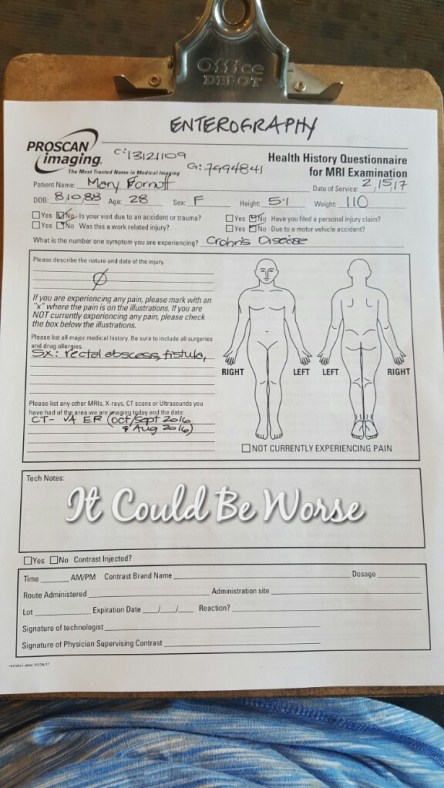 Office
DEPOT
ENTEROGRAPHY
PROSCAN
imaging
The Most Trusted Name in Medical Imaging
C:13121109
G:7994841
Health History Questionnaire
for MRI Examination
Patient Name: Mary Fornoff Date of Service: 2,15,17
DOB: 81088 Age: 28 Sex: F Height: 5'1 Weight: 110
Yes No Is your visit due to an accident or trauma? Yes No Have you filed a personal injury claim?
Yes No Was this a work related injury? Yes No Due to a motor vehicle accident?
What is the number one symptom you are experiencing? Crohn's Disease
Please describe the nature and date of the injury.
If you are experiencing any pain, please mark with an
"x" where the pain is on the illustrations. If you are
NOT currently experiencing any pain, please check
the box below the illustrations.
Please list all major medical history. Be sure to include all surgeries
and drug allergies.
Sx: rectal abscess, fistula,
RIGHT LEFT LEFT RIGHT
Please list any other MRIs, X-rays, CT scans or Ultrasounds you
have had of the area we are imaging today and the date:
CT- VA ER (oct/sept 2016
& Aug 2016)
NOT CURRENTLY EXPERIENCING PAIN
Tech Notes:
It Could Be Worse
Yes No Contrast Injected?
Time AM/PM Contrast Brand Name Dosage
Route Administered Administration site
Lot Expiration Date / / Reaction?
Signature of technologist
Signature of Physician Supervising Contrast